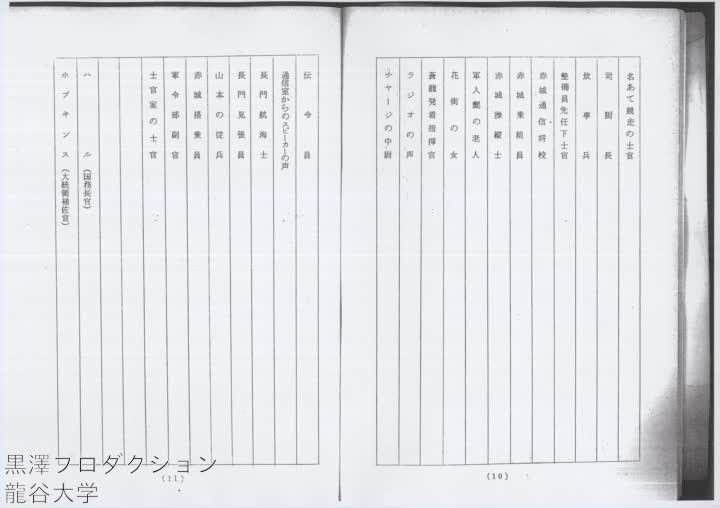 名あて競走の士官
司厨長
炊事兵
整備員先任下士官
赤城通信将校
赤城乗組員
赤城操縦士
軍人髭の老人
花街の女
蒼龍発着指揮官
ラジオの声
チャージの中尉
(10)
伝令員
通信室からのスピーカーの声
長門航海士
長門見張員
山本の従兵
赤城搭乗員
軍令部副官
士官室の士官
ハル(国務長官)
ホプキンス(大統領補佐官)
(11)
黒澤プロダクション
龍谷大学